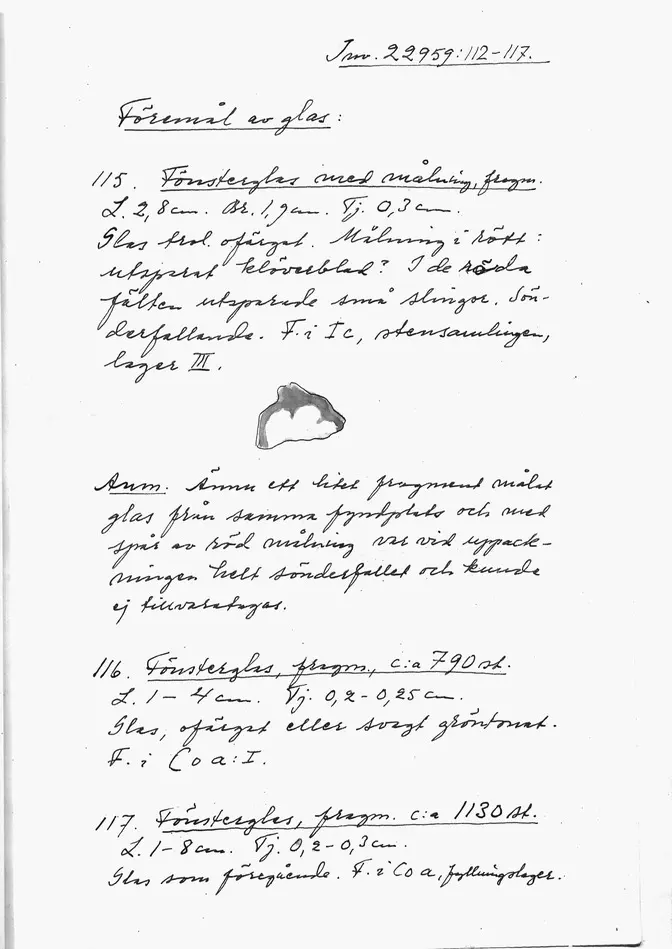 Inv. 22959:112-117.
Föremål av glas:
115. Fönsterglas med målning, fragm.
L. 2,8 cm. Br. 1,9 cm. Tj. 0,3 cm.
Glas trol. ofärgat. Målning i rött:
utsparat klöverblad? I de röda
fälten utsparade små slingor. Sön-
derfallande. F. i Ic, stensamlingen,
lager III.
Anm. Ännu ett litet fragment målat
glas från samma fyndplats och med
spår av röd målning var vid uppack-
ningen helt sönderfallet och kunde
ej tillvaratagas.
116. Fönsterglas, fragm., c:a 790 st.
L. 1-4 cm. Tj. 0,2-0,25 cm.
Glas, ofärgat eller svagt gröntonat.
F. i Co a:I.
117. Fönsterglas, fragm. c:a 1130 st.
L. 1-8 cm. Tj. 0,2-0,3 cm.
Glas som föregående. F. i Co a, fyllningslager.